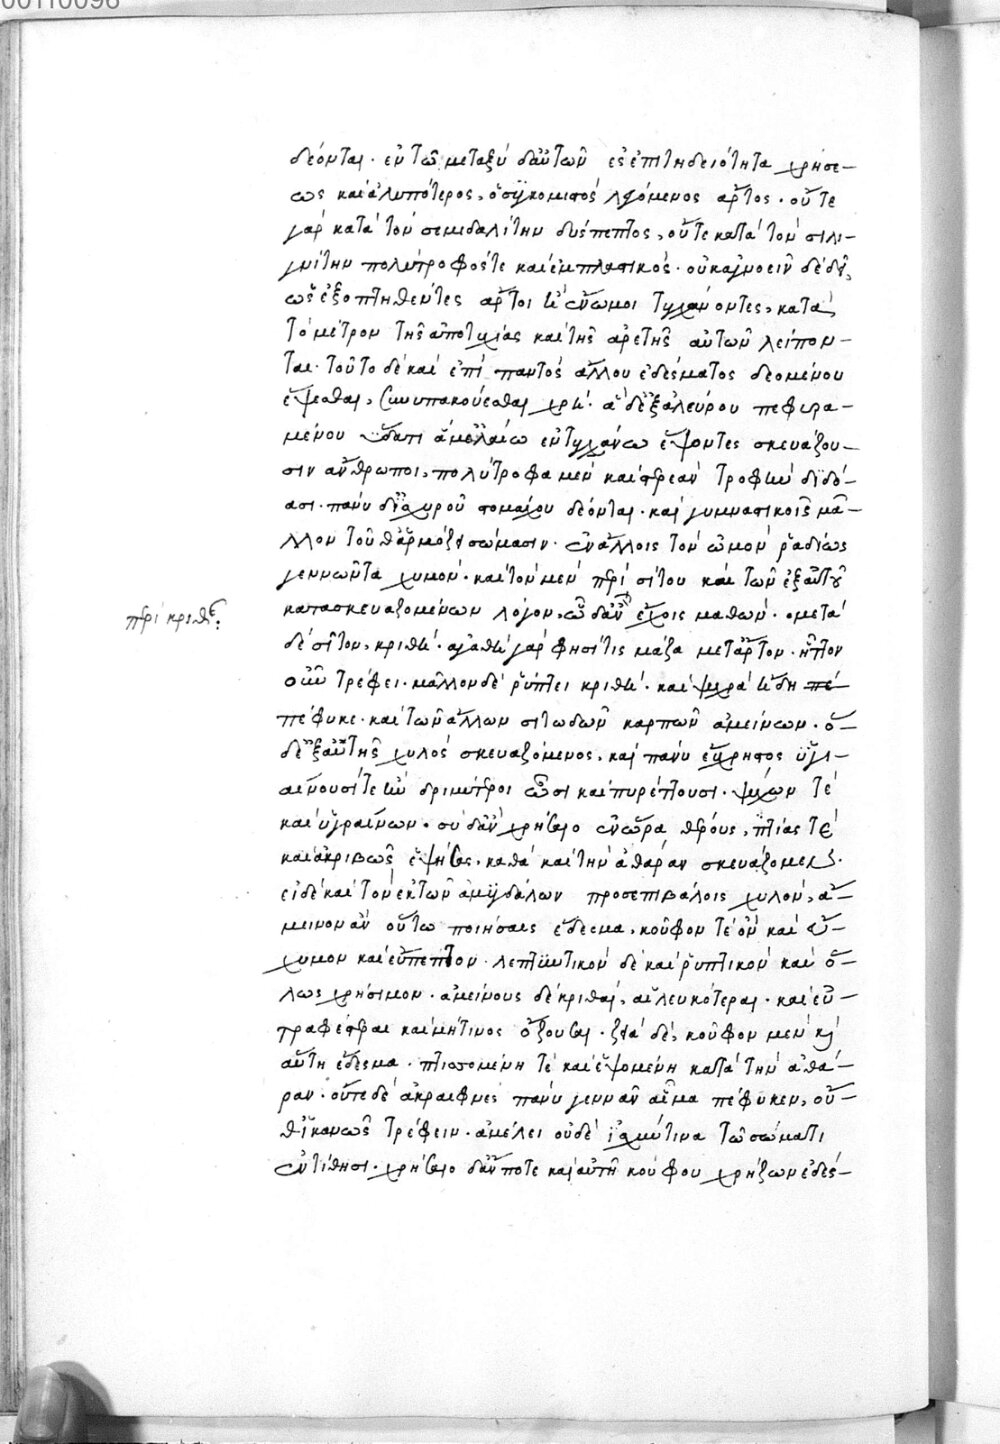 00110096
δέονται. ἐν τῷ μεταξὺ δ' αὐτῶν ἐς ἐπιτηδειότητα χρήσε-
ως καὶ ἀλυπότερος, ὁ συγκομιστὸς λεγόμενος ἄρτος. οὔτε
γὰρ κατὰ τὸν σεμιδαλίτην δύσπεπτος, οὔτε κατὰ τὸν σιλι-
γνίτην πολύτροφός τε καὶ ἐμπλαστικός. οὐκ ἀγνοεῖν δὲ δεῖ,
ὡς ἐξοπτηθέντες ἄρτοι ἢ ἔνωμοι τυγχάνοντες, κατὰ
τὸ μέτρον τῆς ἀποτυχίας καὶ τῆς ἀρετῆς αὐτῶν λείπον-
ται. τοῦτο δὲ καὶ ἐπὶ παντὸς ἄλλου ἐδέσματος δεομένου
ἕψεσθαι, συνυπακούεσθαι χρή. ἃ δ' ἐξ ἀλεύρου πεφυρα-
μένου ὕδατι ἅμ' ἐλαίῳ ἐν τηγάνῳ ἕψοντες σκευάζου-
σιν ἄνθρωποι, πολύτροφα μὲν καὶ στερεὰν τροφὴν διδό-
ασι. πάνυ δ' ἰσχυροῦ στομάχου δέονται. καὶ γυμναστικοῖς μᾶ-
λλον τοῦθ' ἁρμόζει σώμασιν. ἐν ἄλλοις τὸν ὠμὸν ῥαδίως
γεννῶντα χυμόν. καὶ τὸν μὲν περὶ σίτου καὶ τῶν ἐξ αὐτοῦ
κατασκευαζομένων λόγον, ὧδ' ἂν ἔχοις μαθών. ὁ μετὰ
περὶ κριθῆς:
δὲ σῖτον, κριθή. ἀγαθὴ γὰρ φησί τις μάζα μετ' ἄρτον. ἧττον
οὖν τρέφει. μᾶλλον δὲ ῥύπτει κριθή. καὶ ψυχρὰ ἤδη πέ-
πέφυκε. καὶ τῶν ἄλλων σιτωδῶν καρπῶν ἀμείνων. ὁ
δ' ἐξ αὐτῆς χυλὸς σκευαζόμενος, καὶ πάνυ εὔχρηστος ὑγι-
αίνουσί τε ἢν δριμύτεροι ὦσι καὶ πυρέττουσι. ψύχων τὲ
καὶ ὑγραίνων. σὺ δ' ἂν χρήσαιο ἐν ὥρᾳ θέρους, πτίσας τὲ
καὶ ἀκριβῶς ἑψήσας, καθὰ καὶ τὴν ἀθάραν σκευάζομεν.
εἰ δὲ καὶ τὸν ἐκ τῶν ἀμυγδάλων προσεπιβάλοις χυλὸν, ἄ-
μεινον ἂν οὕτω ποιήσαις ἔδεσμα, κοῦφον τὲ ὂν καὶ εὔ-
χυμον καὶ εὔπεπτον. λεπτυντικὸν δὲ καὶ ῥυπτικὸν καὶ ὅ-
λως χρήσιμον. ἀμείνους δὲ κριθαὶ, αἱ λευκότεραι. καὶ εὐ-
τραφέστεραι καὶ μή τινος ὄζουσαι. ζειὰ δὲ, κοῦφον μὲν καὶ
αὕτη ἔδεσμα. πτισσομένη τὲ καὶ ἑψομένη κατὰ τὴν ἀθά-
ραν. οὔτε δὲ ἀκραιφνὲς πάνυ γεννᾶν αἷμα πέφυκεν, οὔ-
θ' ἱκανῶς τρέφειν. ἀμέλει οὐδὲ ἰσχύν τινα τῷ σώματι
ἐντίθησι. χρήσαιο δ' ἄν ποτε καὶ αὐτῇ κούφου χρῄζων ἐδέσ-